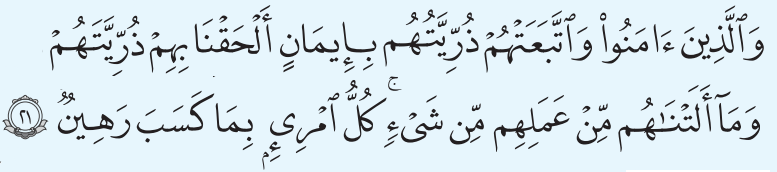 وَٱلَّذِينَ ءَامَنُوا۟ وَٱتَّبَعَتْهُمْ ذُرِّيَّتُهُم بِإِيمَٰنٍ أَلْحَقْنَا بِهِمْ ذُرِّيَّتَهُمْ
وَمَآ أَلَتْنَٰهُم مِّنْ عَمَلِهِم مِّن شَىْءٍۚ كُلُّ ٱمْرِئٍۭ بِمَا كَسَبَ رَهِينٌ ٢١